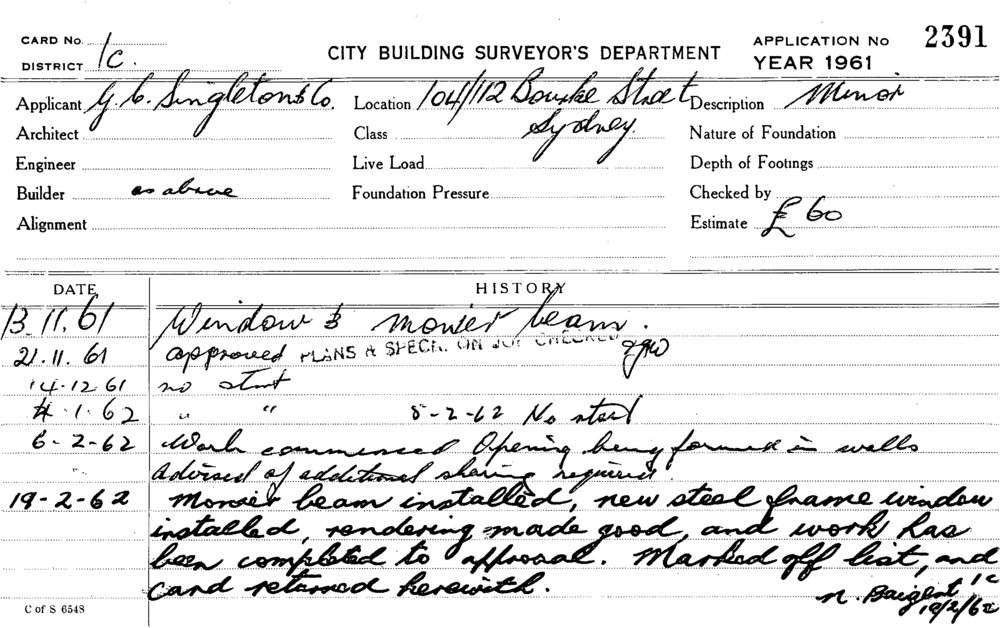 CARD No. 1
DISTRICT 1C.
CITY BUILDING SURVEYOR'S DEPARTMENT
APPLICATION No 2391
YEAR 1961
Applicant G. C. Singleton & Co. Location 104/112 Bourke Street Description Minor
Sydney.
Architect Class Nature of Foundation
Engineer Live Load Depth of Footings
Builder as above Foundation Pressure Checked by
Alignment Estimate £ 60
DATE HISTORY
13.11.61 Window & monier beam.
21.11.61 approved PLANS & SPECN. ON JOB CHECKED
14-12-61 no start
4.1.62 " " 5-2-62 No start
6-2-62 Work commenced Opening being formed in walls
Advised of additional shoring required.
19-2-62 Monier beam installed, new steel frame window
installed, rendering made good, and work has
been completed to approval. Marked off list, and
card returned herewith.
N. Baigent 1C
19/2/62
C of S 6548